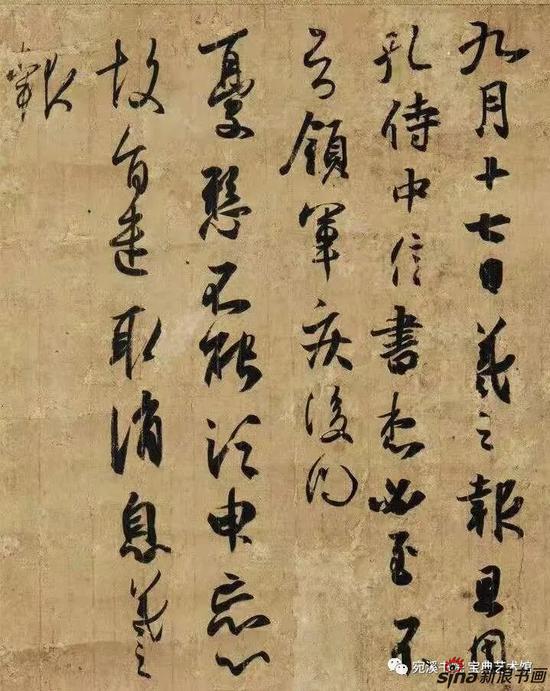 九月十七日羲之報且因
孔侍中信書想必至不
知領軍疾後問
憂懸不能須臾忘心
故旨遣取消息羲之
報
宛溪书 宝典艺术馆
sina新浪书画